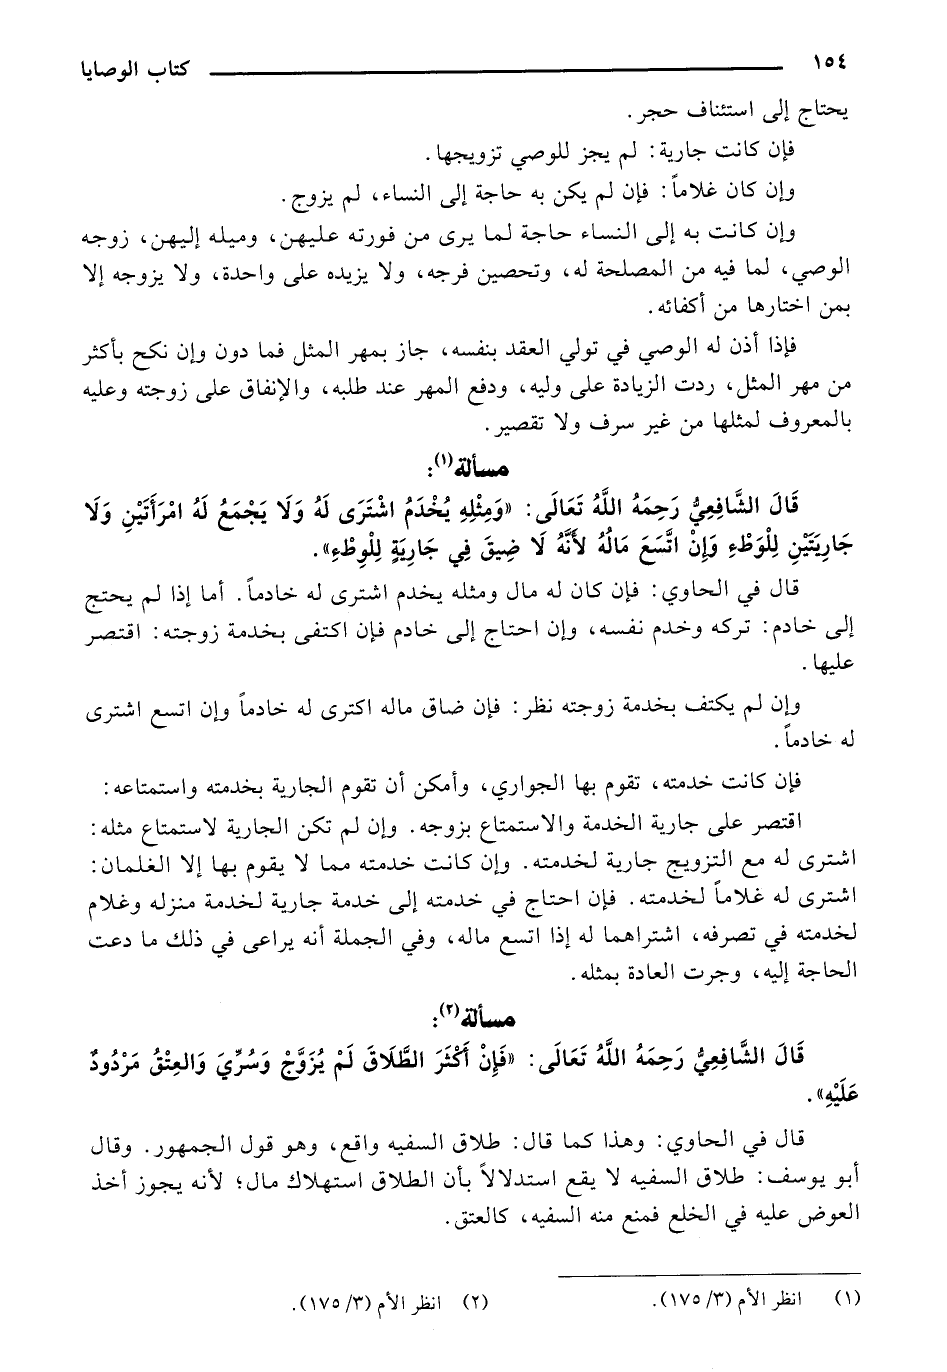 ١٥٤ كتاب الوصايا
يحتاج إلى استئناف حجر.
فإن كانت جارية: لم يجز للوصي تزويجها.
وإن كان غلاماً: فإن لم يكن به حاجة إلى النساء، لم يزوج.
وإن كانت به إلى النساء حاجة لما يرى من فورته عليهن، وميله إليهن، زوجه
الوصي، لما فيه من المصلحة له، وتحصين فرجه، ولا يزيده على واحدة، ولا يزوجه إلا
بمن اختارها من أكفائه.
فإذا أذن له الوصي في تولي العقد بنفسه، جاز بمهر المثل فما دون وإن نكح بأكثر
من مهر المثل، ردت الزيادة على وليه، ودفع المهر عند طلبه، والإنفاق على زوجته وعليه
بالمعروف لمثلها من غير سرف ولا تقصير.
مسألة(١):
قَالَ الشَّافِعِيُّ رَحِمَهُ اللَّهُ تَعَالَى: «وَمِثْلِهِ يُخْدَمُ اشْتَرَى لَهُ وَلَا يَجْمَعُ لَهُ امْرَأَتَيْنِ وَلَا
جَارِيَتَيْنِ لِلْوَطْءِ وَإِنْ اتَّسَعَ مَالُهُ لأَنَّهُ لَا ضِيقَ فِي جَارِيَةٍ لِلْوِطْءِ».
قال في الحاوي: فإن كان له مال ومثله يخدم اشترى له خادماً. أما إذا لم يحتج
إلى خادم: تركه وخدم نفسه، وإن احتاج إلى خادم فإن اكتفى بخدمة زوجته: اقتصر
عليها.
وإن لم يكتف بخدمة زوجته نظر: فإن ضاق ماله اكترى له خادماً وإن اتسع اشترى
له خادماً.
فإن كانت خدمته، تقوم بها الجواري، وأمكن أن تقوم الجارية بخدمته واستمتاعه:
اقتصر على جارية الخدمة والاستمتاع بزوجه. وإن لم تكن الجارية لاستمتاع مثله:
اشترى له مع التزويج جارية لخدمته. وإن كانت خدمته مما لا يقوم بها إلا الغلمان:
اشترى له غلاماً لخدمته. فإن احتاج في خدمته إلى خدمة جارية لخدمة منزله وغلام
لخدمته في تصرفه، اشتراهما له إذا اتسع ماله، وفي الجملة أنه يراعى في ذلك ما دعت
الحاجة إليه، وجرت العادة بمثله.
مسألة(٢):
قَالَ الشَّافِعِيُّ رَحِمَهُ اللَّهُ تَعَالَى: «فَإِنْ أَكْثَرَ الطَّلَاقَ لَمْ يُزَوَّجْ وَسُرِّيَ وَالعِتْقُ مَرْدُودٌ
عَلَيْهِ».
قال في الحاوي: وهذا كما قال: طلاق السفيه واقع، وهو قول الجمهور. وقال
أبو يوسف: طلاق السفيه لا يقع استدلالاً بأن الطلاق استهلاك مال؛ لأنه يجوز أخذ
العوض عليه في الخلع فمنع منه السفيه، كالعتق.
(١) انظر الأم (٣/ ١٧٥). (٢) انظر الأم (٣/ ١٧٥).